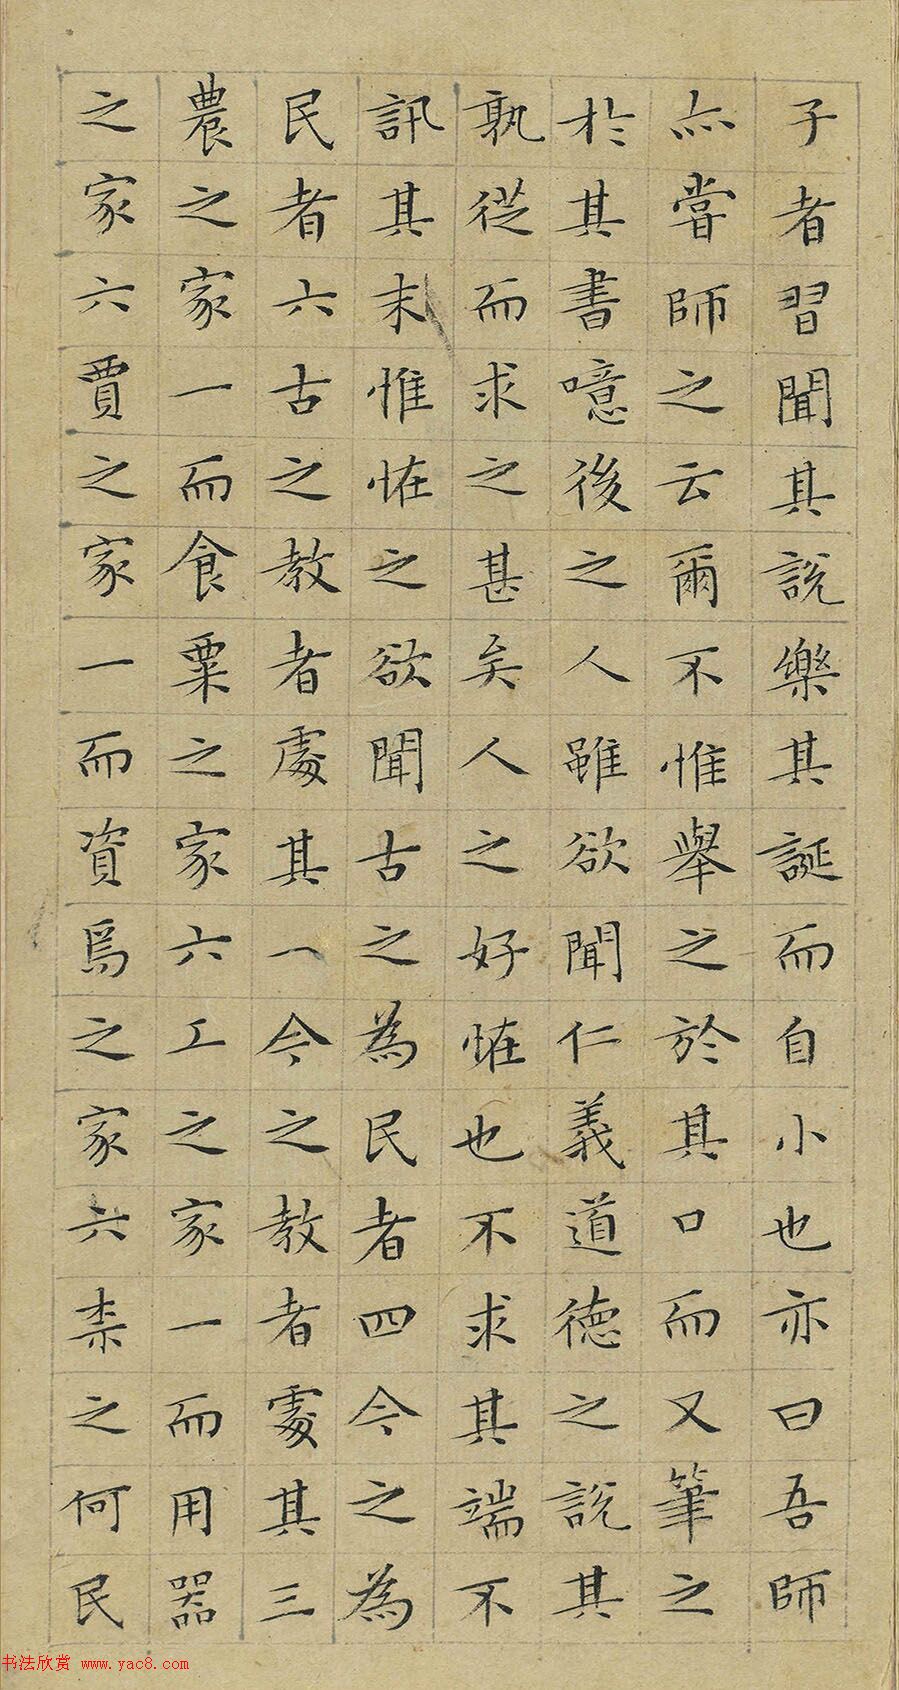 子者習聞其說樂其誕而自小也亦曰吾師
亦嘗師之云爾不惟舉之於其口而又筆之
於其書噫後之人雖欲聞仁義道德之說其
孰從而求之甚矣人之好恠也不求其端不
訊其末惟恠之欲聞古之為民者四今之為
民者六古之教者處其一今之教者處其三
農之家一而食粟之家六工之家一而用器
之家六賈之家一而資焉之家六柰之何民
书法欣赏 www.yac8.com